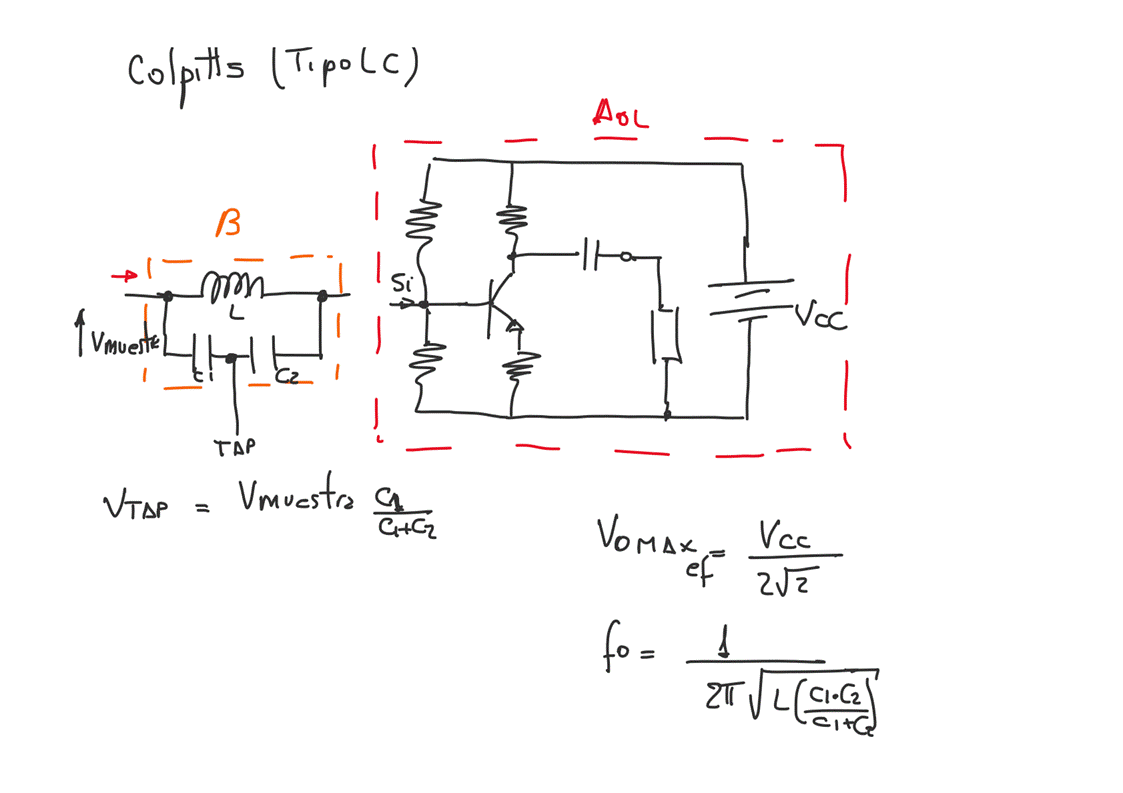 Colpitts (Tipo LC)
AOL
β
L
Vmuestr
C1
C2
TAP
Si
VCC
VTAP = Vmuestra C1/(C1+C2)
VOMAX ef = VCC/(2√2)
fo = 1/(2π√(L(C1·C2/(C1+C2))))